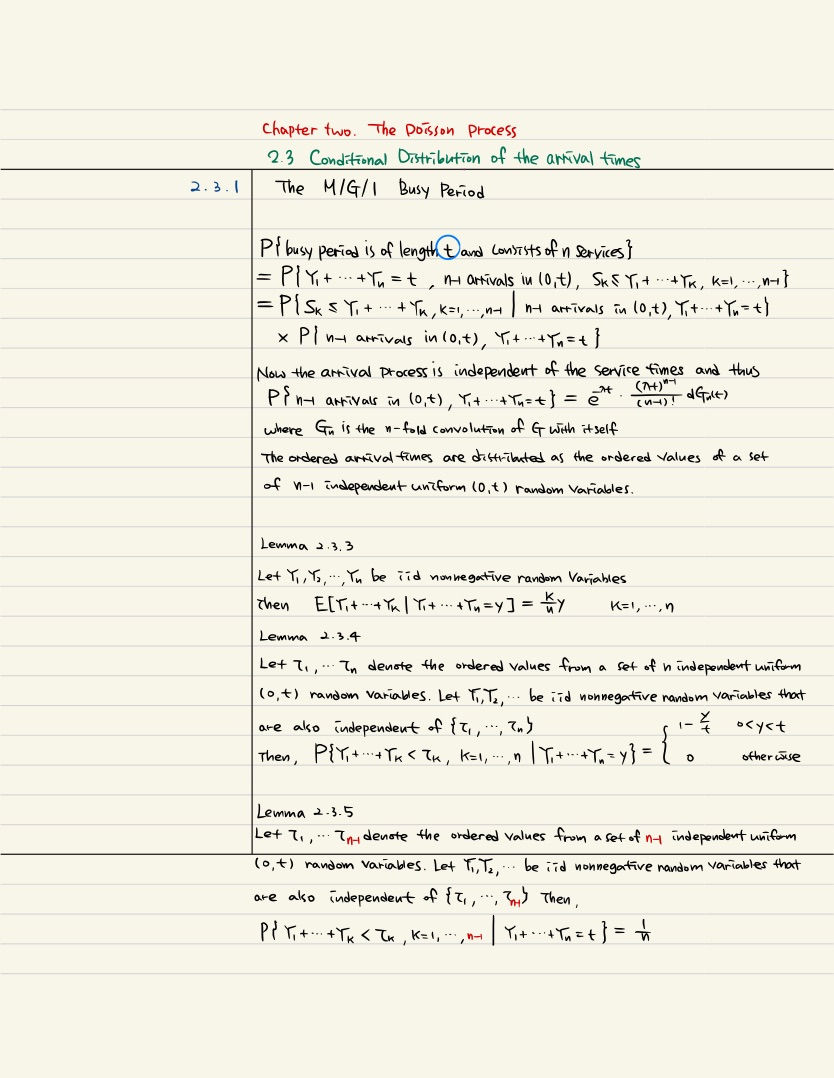 Chapter two. The Poisson Process
2.3 Conditional Distribution of the arrival times
2.3.1 The M/G/1 Busy Period
P{busy period is of length t and consists of n services}
= P{Y₁+⋯+Yₙ=t, n-1 arrivals in (0,t), Sₖ≤Y₁+⋯+Yₖ, k=1,⋯,n-1}
= P{Sₖ≤Y₁+⋯+Yₖ, k=1,⋯,n-1 | n-1 arrivals in (0,t), Y₁+⋯+Yₙ=t}
× P{n-1 arrivals in (0,t), Y₁+⋯+Yₙ=t}
Now the arrival process is independent of the service times and thus
P{n-1 arrivals in (0,t), Y₁+⋯+Yₙ=t} = e^{-λt} · (λt)^{n-1}/(n-1)! dGₙ(t)
where Gₙ is the n-fold convolution of G with itself
The ordered arrival times are distributed as the ordered values of a set
of n-1 independent uniform (0,t) random variables.
Lemma 2.3.3
Let Y₁,Y₂,⋯,Yₙ be iid nonnegative random variables
then E[Y₁+⋯+Yₖ | Y₁+⋯+Yₙ=y] = k/n y k=1,⋯,n
Lemma 2.3.4
Let τ₁,⋯τₙ denote the ordered values from a set of n independent uniform
(0,t) random variables. Let Y₁,Y₂,⋯ be iid nonnegative random variables that
are also independent of {τ₁,⋯,τₙ}
Then, P{Y₁+⋯+Yₖ<τₖ, k=1,⋯,n | Y₁+⋯+Yₙ=y} = { 1-y/t 0<y<t
0 otherwise
Lemma 2.3.5
Let τ₁,⋯τₙ₋₁ denote the ordered values from a set of n-1 independent uniform
(0,t) random variables. Let Y₁,Y₂,⋯ be iid nonnegative random variables that
are also independent of {τ₁,⋯,τₙ₋₁} Then,
P{Y₁+⋯+Yₖ<τₖ, k=1,⋯,n-1 | Y₁+⋯+Yₙ=t} = 1/n